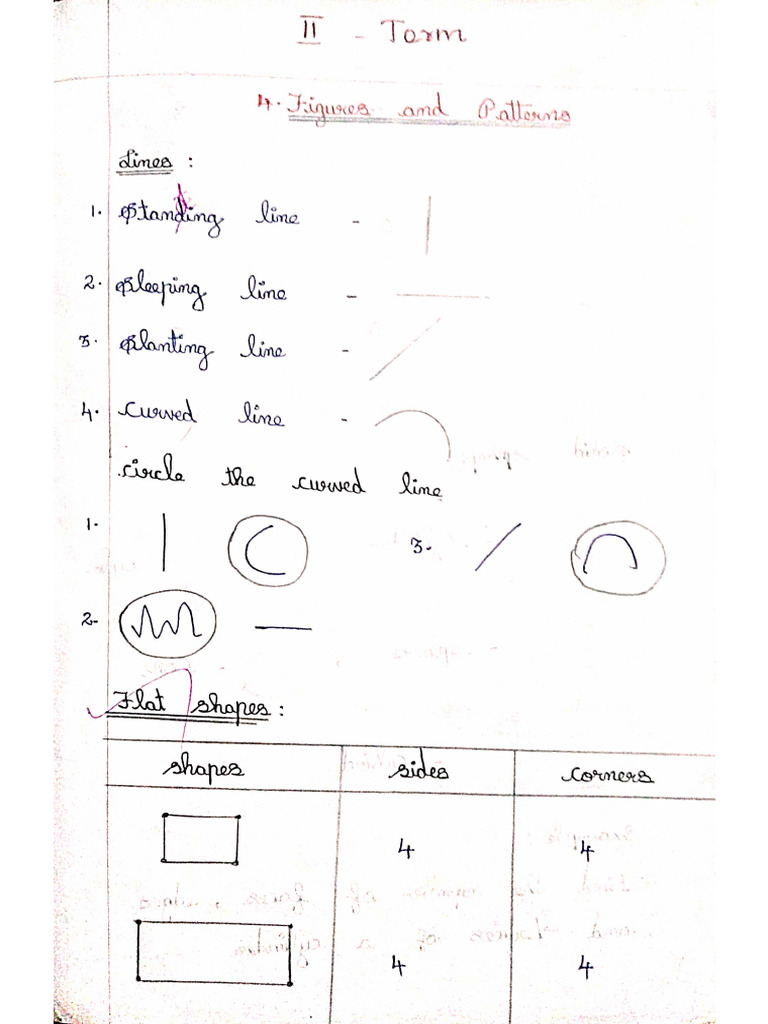 II - Term
4. Figures and Patterns
Lines :
1. Standing line -
2. Sleeping line -
3. Slanting line -
4. Curved line -
Circle the curved line
1. 3.
2.
Flat shapes :
shapes sides corners
4 4
4 4